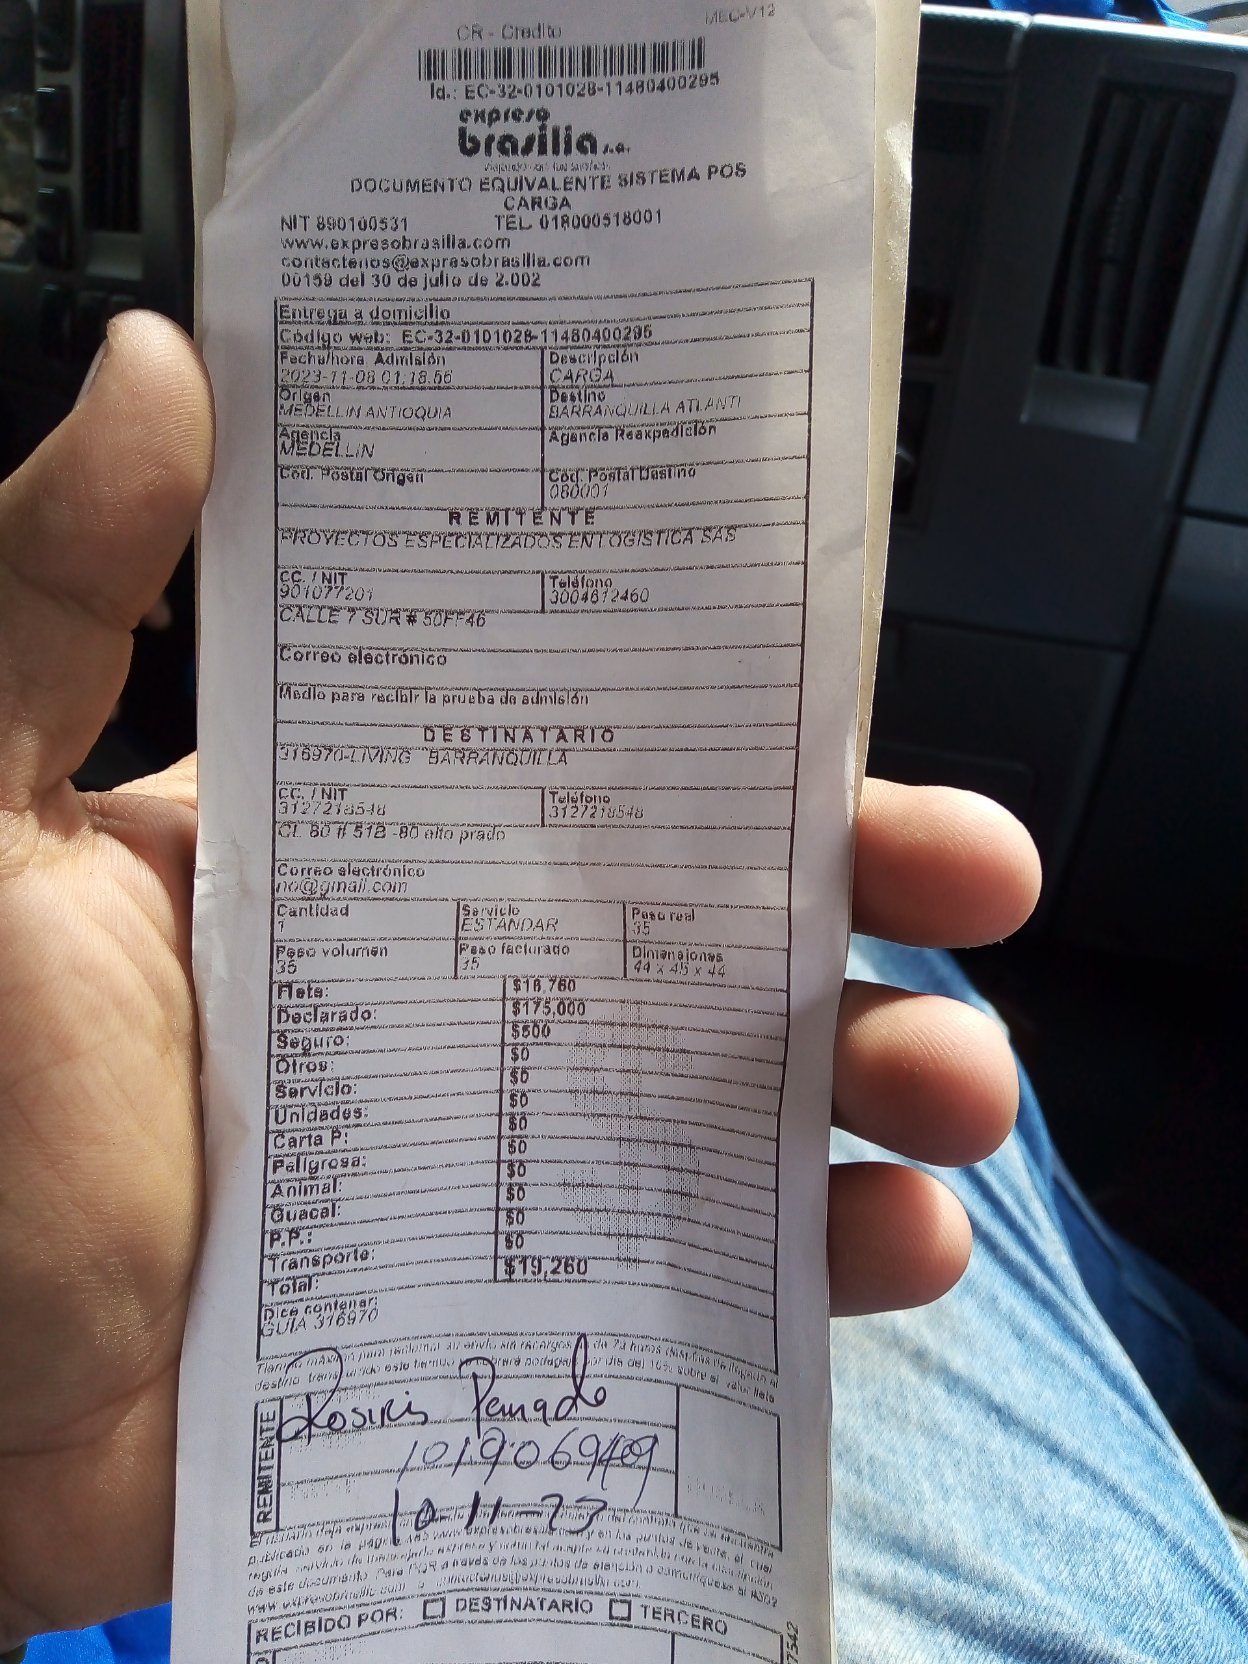 MEC-V12
CR - Credito
Id.: EC-32-0101028-11480400295
expreso
brasilia s.a.
DOCUMENTO EQUIVALENTE SISTEMA POS
CARGA
NIT 890100531 TEL. 018000518001
www.expresobrasilia.com
contactenos@expresobrasilia.com
00159 del 30 de julio de 2.002
Entrega a domicilio
Código web: EC-32-0101028-11480400295
Fecha/hora Admisión Descripción
2023-11-08 01:18:56 CARGA
Origen Destino
MEDELLIN ANTIOQUIA BARRANQUILLA ATLANTI
Agencia Agencia Reexpedición
MEDELLIN
Cod. Postal Origen Cod. Postal Destino
080001
REMITENTE
PROYECTOS ESPECIALIZADOS EN LOGISTICA SAS
CC. / NIT Teléfono
901077201 3004612460
CALLE 7 SUR # 50FF46
Correo electrónico
Medio para recibir la prueba de admisión
DESTINATARIO
316970-LIVING BARRANQUILLA
CC. / NIT Teléfono
3127218548 3127218548
CL 80 # 51B -80 alto prado
Correo electrónico
no@gmail.com
Cantidad Servicio Peso real
1 ESTANDAR 35
Peso volumen Peso facturado Dimensiones
35 35 44 x 45 x 44
Flete: $18,760
Declarado: $175,000
Seguro: $500
Otros: $0
Servicio: $0
Unidades: $0
Carta P: $0
Peligrosa: $0
Animal: $0
Guacal: $0
P.P.: $0
Transporte: $0
Total: $19,260
Dice contener:
GUIA 316970
Tiempo máximo para reclamar su envío sin recargos de 72 horas después de llegado al
destino, transcurrido este tiempo cobrará bodegaje por día del 10% sobre el valor flete
REMITENTE
Rosiris
1019069409
10-11-23
publicado en la página
de este documento. Para PQR a través de los puntos de atención o comuníquese al
www.expresobrasilia.com o contactenos@expresobrasilia.com
RECIBIDO POR: DESTINATARIO TERCERO
7542